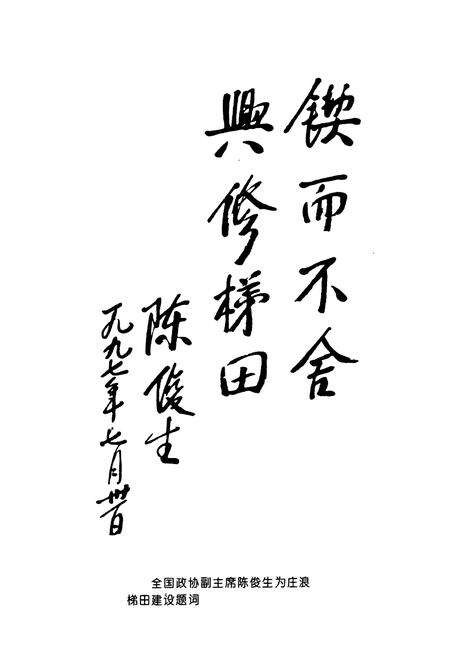 锲而不舍
興修梯田
陈俊生
一九九七年七月卅一日
全国政协副主席陈俊生为庄浪
梯田建设题词